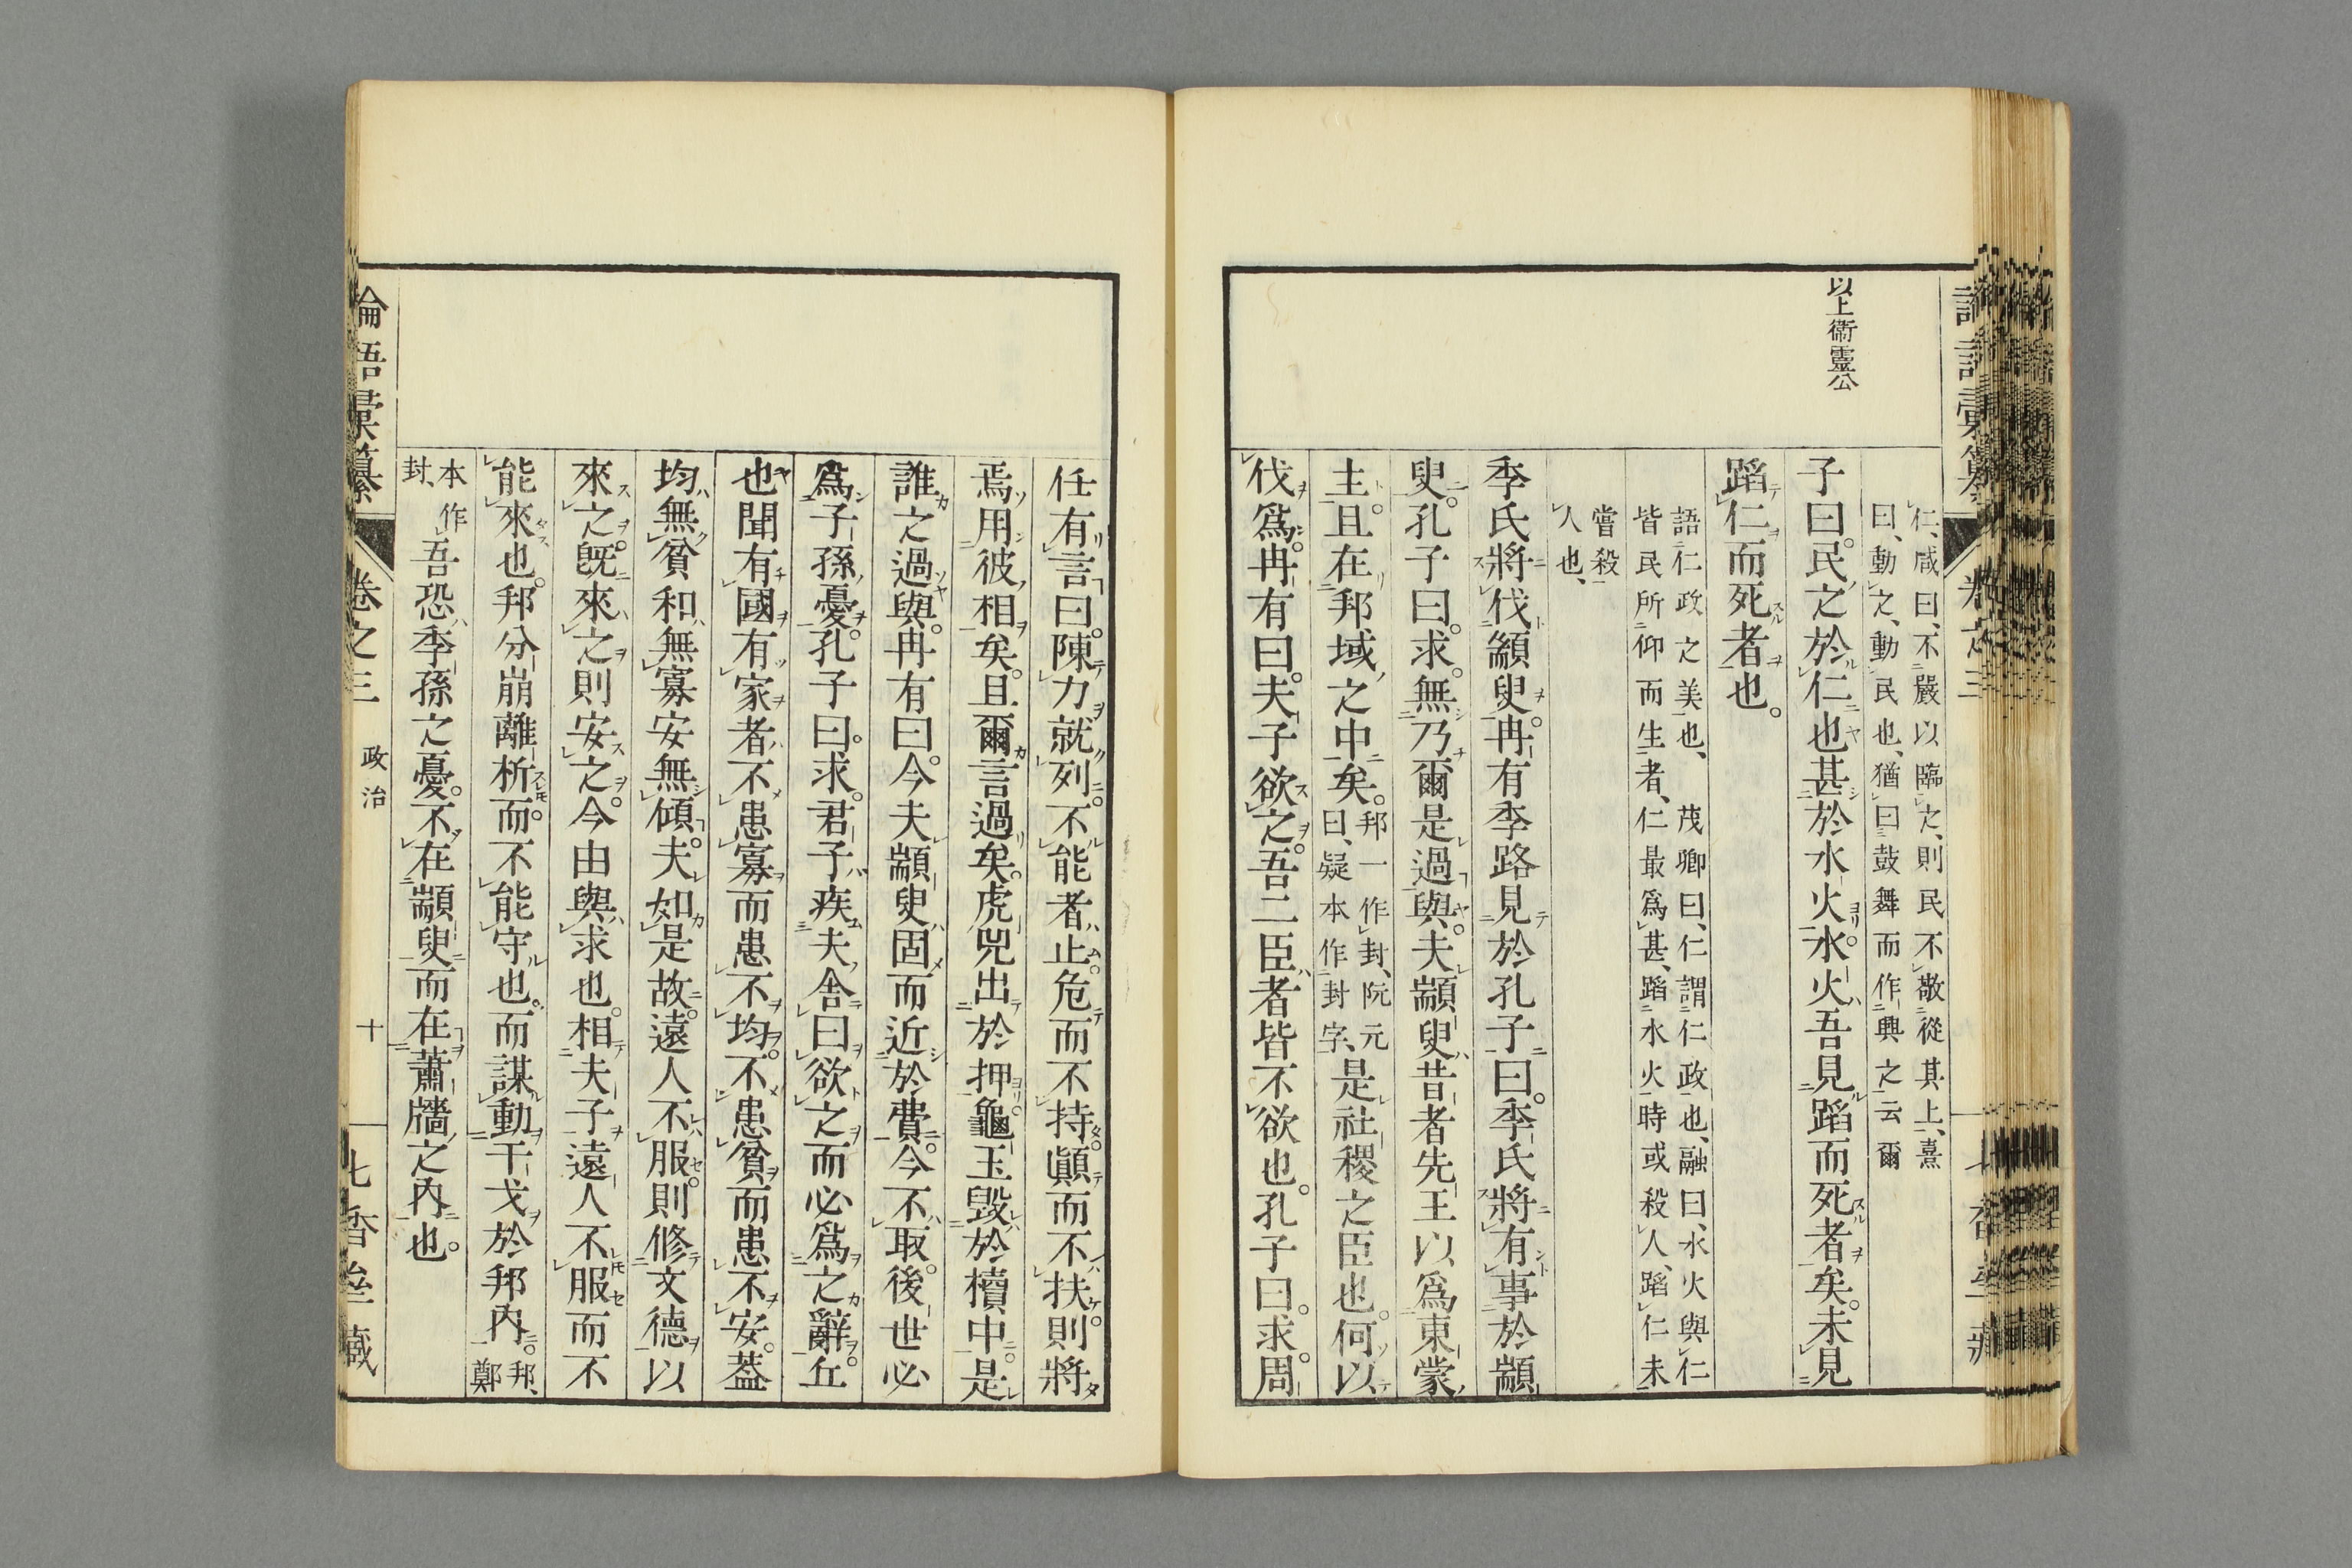 以上衞靈公
仁、咸曰、不嚴以臨之、則民不敬從其上、熹
曰、動之、動民也、猶曰鼓舞而作興之云爾
子曰。民之於仁也甚於水火。水火吾見蹈而死者矣。未見
蹈仁而死者也。
語仁政之美也、茂卿曰、仁謂仁政也、融曰、水火與仁
皆民所仰而生者、仁最爲甚、蹈水火時或殺人、蹈仁未
嘗殺
人也、
季氏將伐顓臾。冉有季路見於孔子曰。季氏將有事於顓
臾。孔子曰。求。無乃爾是過與。夫顓臾昔者先王以爲東蒙
主。且在邦域之中矣。邦一作封、阮元曰、疑本作封字、是社稷之臣也。何以
伐爲。冉有曰。夫子欲之。吾二臣者皆不欲也。孔子曰。求。周
任有言曰。陳力就列。不能者止。危而不持。顚而不扶。則將
焉用彼相矣。且爾言過矣。虎兕出於押。龜玉毀於櫝中。是
誰之過與。冉有曰。今夫顓臾固而近於費。今不取。後世必
爲子孫憂。孔子曰。求。君子疾夫舍曰欲之而必爲之辭。丘
也聞有國有家者。不患寡而患不均。不患貧而患不安。蓋
均無貧和無寡安無傾。夫如是故遠人不服。則修文德以
來之。既來之則安之。今由與求也。相夫子遠人不服而不
能來也。邦分崩離析而。不能守也。而謀動干戈於邦內。邦、鄭
本作封、吾恐季孫之憂。不在顓臾而在蕭牆之內也。
論語彙纂 卷之三 政治 十 七香齋藏